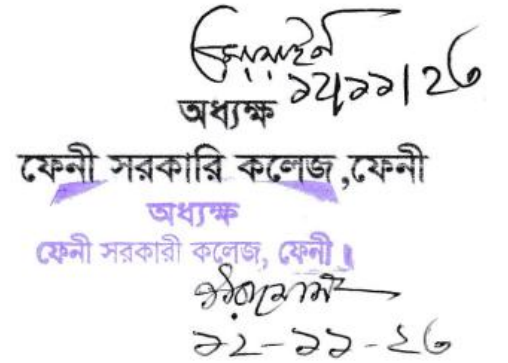 ১২/১১/২৩
অধ্যক্ষ
ফেনী সরকারি কলেজ ,ফেনী
অধ্যক্ষ
ফেনী সরকারী কলেজ, ফেনী।
১২-১১-২৩